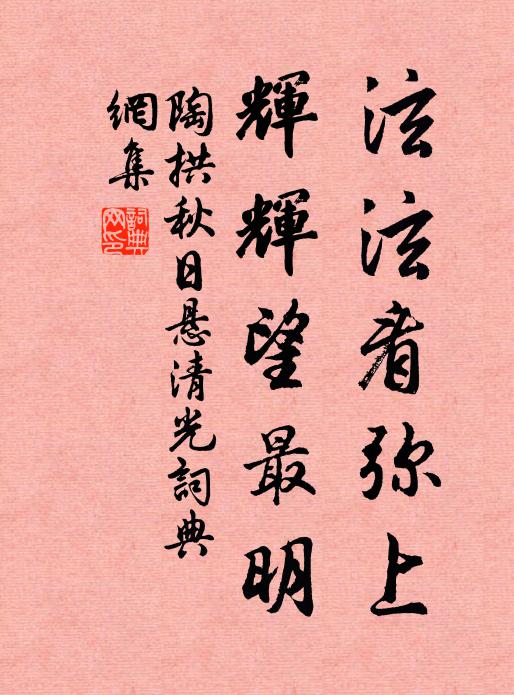 泫泫看弥上
輝輝望最明
陶拱秋日悬清光詞典
網集
詞典
网印